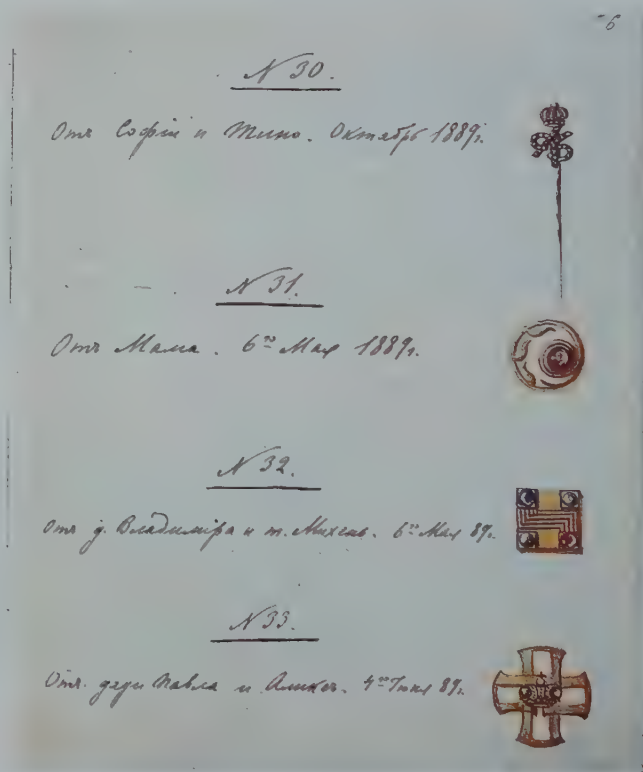 6
N 30.
Отъ Софіи и Тино. Октябрь 1889г.
N 31.
Отъ Мама. 6го Мая 1889г.
N 32.
Отъ д. Владиміра и т. Михень. 6го Мая 89г.
N 33.
Отъ дяди Павла и Аликсъ. 4го Іюня 89г.